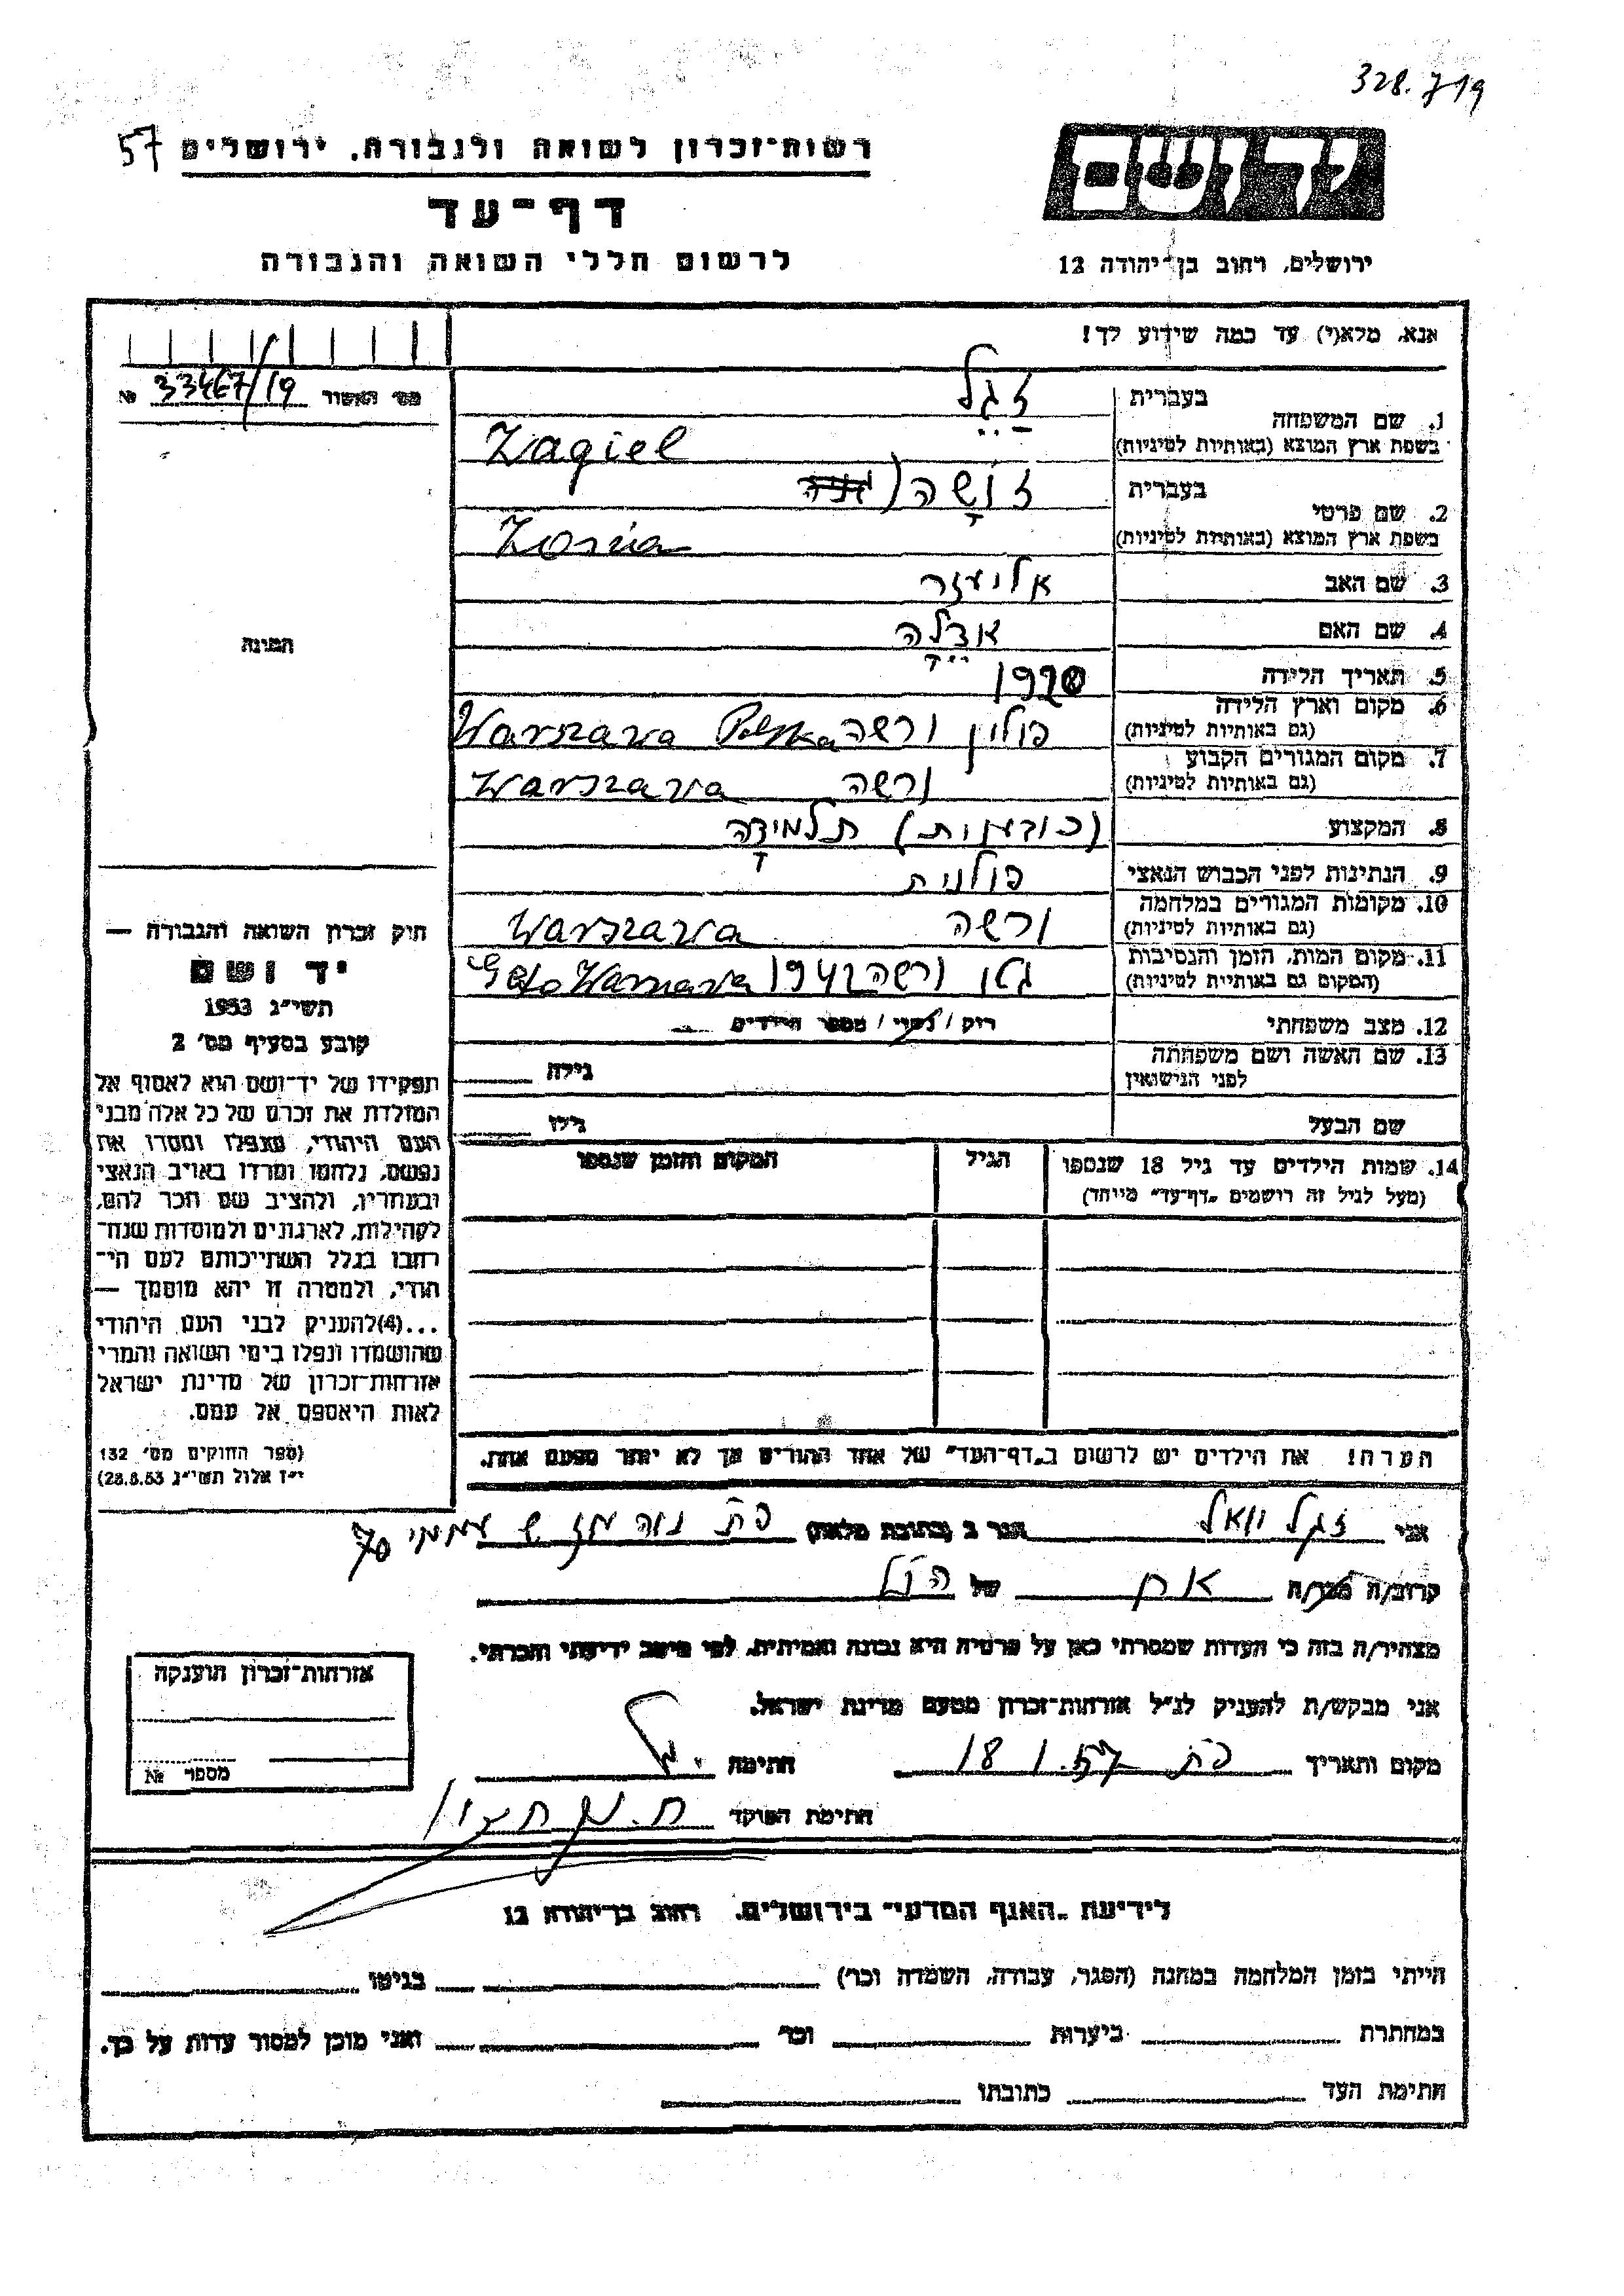 328. 719
57
רשות־זכרון לשואה ולגבורה, ירושלים
יד ושם
דף־עד
לרשום חללי השואה והגבורה
ירושלים, רחוב בן־יהודה 12
אנא, מלא(י) עד כמה שידוע לך!
מס׳ האשור 33467/19 №
1. שם המשפחה
בעברית זגל
בשפת ארץ המוצא (באותיות לטיניות) Zagiel
2. שם פרטי
בעברית זושה
בשפת ארץ המוצא (באותיות לטיניות) Zosia
3. שם האב אליעזר
4. שם האם אדלה
5. תאריך הלידה 1920
6. מקום וארץ הלידה
(גם באותיות לטיניות) פולין ורשה Warszawa Polska
7. מקום המגורים הקבוע
(גם באותיות לטיניות) ורשה Warszawa
8. המקצוע (כובענות) תלמידה
9. הנתינות לפני הכבוש הנאצי פולנית
10. מקומות המגורים במלחמה
(גם באותיות לטיניות) ורשה Warszawa
11. מקום המות, הזמן והנסיבות
(המקום גם באותיית לטיניות) גטו ורשה 1942 Geto Warszawa
12. מצב משפחתי רוק / נשוי / מספר הילדים
13. שם האשה ושם משפחתה
לפני הנישואין
גילה
שם הבעל
גילו
14. שמות הילדים עד גיל 18 שנספו
(מעל לגיל זה רושמים „דף־עד” מייחד)
הגיל
המקום והזמן שנספו
הערה! את הילדים יש לרשום ב„דף־העד” של אחד ההורים אך לא יותר מפעם אחת.
התמונה
חוק זכרון השואה והגבורה —
יד ושם
תשי״ג 1953
קובע בסעיף מס׳ 2
תפקידו של יד־ושם הוא לאסוף אל
המולדת את זכרם של כל אלה מבני
העם היהודי, שנפלו ומסרו את
נפשם, נלחמו ומרדו באויב הנאצי
ובעוזריו, ולהציב שם וזכר להם,
לקהילות, לארגונים ולמוסדות שנח־
רבו בגלל השתייכותם לעם הי־
הודי, ולמטרה זו יהא מוסמך —
...(4)להעניק לבני העם היהודי
שהושמדו ונפלו בימי השואה והמרי
אזרחות־זכרון של מדינת ישראל
לאות היאספם אל עמם.
(ספר החוקים מס׳ 132
י״ז אלול תשי״ג 28.8.53)
אני זגל יואל הגר ב (כתובת מלאה) פת נוה עוז ש עממי 70
קרוב/ה מכר/ה אח של הנ״ל
מצהיר/ה בזה כי העדות שמסרתי כאן על פרטיה היא נכונה ואמיתית, לפי מיטב ידיעתי והכרתי.
אני מבקש/ת להעניק לנ״ל אזרחות־זכרון מטעם מדינת ישראל.
מקום ותאריך פת 18 1.57 חתימה
חתימת הפוקד
אזרחות־זכרון הוענקה
מספר №
לידיעת „האגף המדעי” בירושלים, רחוב בן־יהודה 12
הייתי בזמן המלחמה במחנה (הסגר, עבודה, השמדה וכו׳) בגיטו
במחתרת ביערות וכו׳ ואני מוכן למסור עדות על כך.
חתימת העד כתובתו